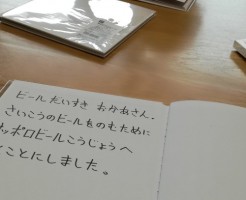 ビールだいすき おかあさん。
さいこうのビールをのむために
ッポロビールこうじょうへ
ことにしました。